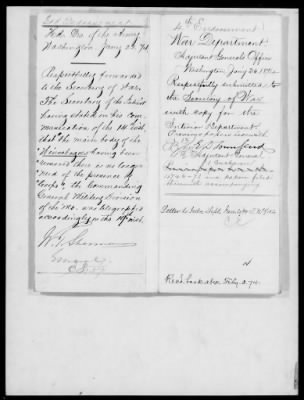 3rd Endorsement
Hd. Qrs of the Army
Washington Jany 23. 74
Respectfully forwarded
to the Secretary of War.
The Secretary of the Interior
having stated in his com-
munication of the 14 inst.
that the main body of the
having been
removed there is no longer
need of the presence of
troops, the Commanding
General Military Division
of the Mo. was telegraphed
accordingly on the inst.
W. T. Sherman
General
4th Endorsement
War Department
Adjutant General's Office
Washington Jany 1874
Respectfully submitted to
the Secretary of War
with copy for the
Interior Department
herewith
Townsend
Adjutant General
and papers filed
therewith accompanying
Letter to Interior Dept.
Rec'd back Feby. 2. 74.